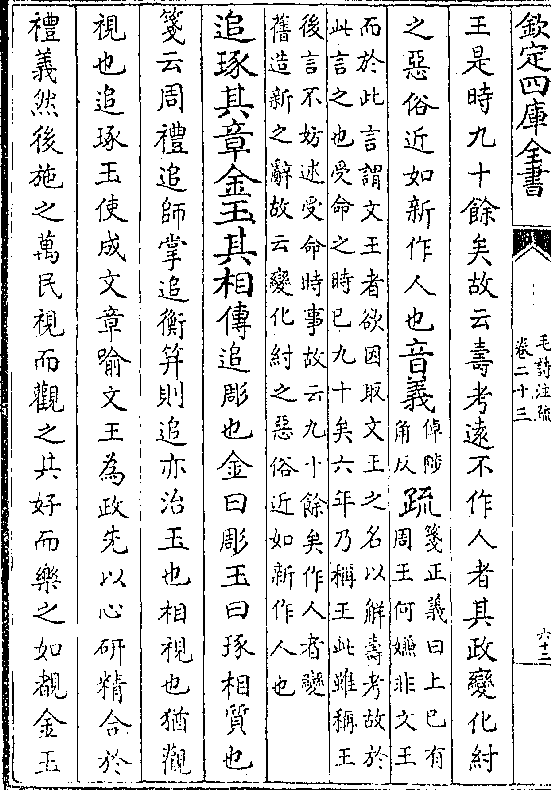 欽定四庫全書
毛詩注疏
卷二十三
六十二
王是時九十餘矣故云壽考遠不作人者其政變化紂
之惡俗近如新作人也音義倬陟角反疏箋正義曰上已有周王何嫌非文王
而於此言謂文王者欲因取文王之名以解壽考故於
此言之也受命之時已九十矣六年乃稱王此雖稱王
後言不妨述受命時事故云九十餘矣作人者變
舊造新之辭故云變化紂之惡俗近如新作人也
追琢其章金玉其相傳追彫也金曰彫玉曰琢相質也
箋云周禮追師掌追衡笄則追亦治玉也相視也猶觀
視也追琢玉使成文章喻文王為政先以心研精合於
禮義然後施之萬民視而觀之其好而樂之如覩金玉